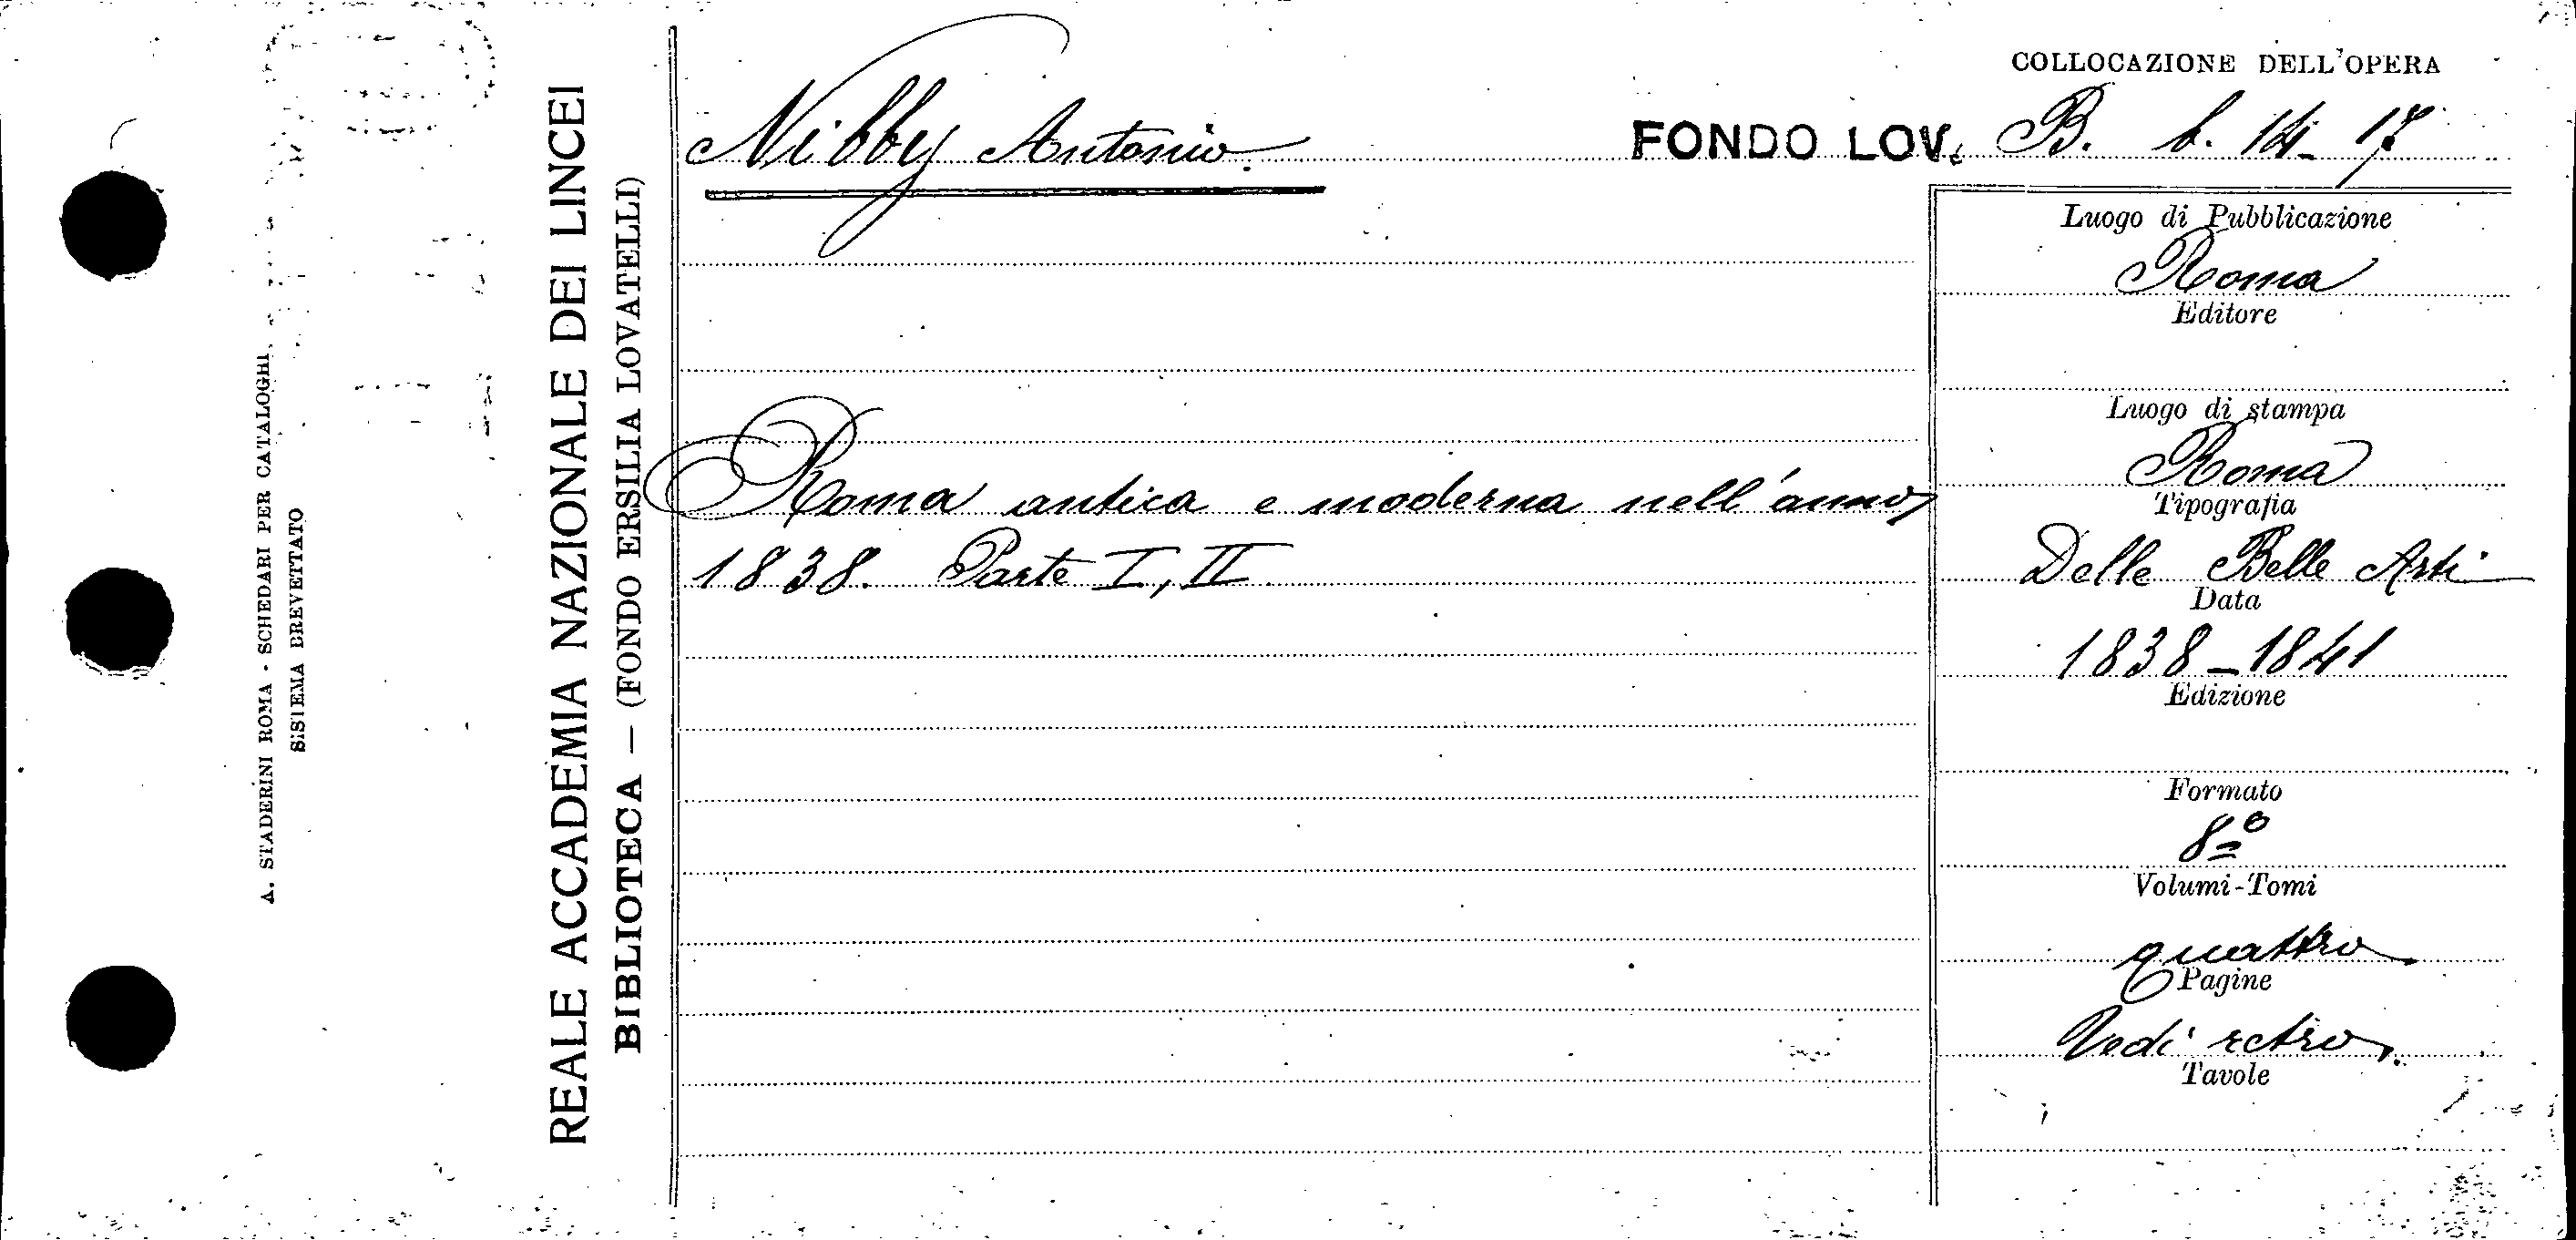 A. STADERINI ROMA - SCHEDARI PER CATALOGHI
SISTEMA BREVETTATO
REALE ACCADEMIA NAZIONALE DEI LINCEI
BIBLIOTECA — (FONDO ERSILIA LOVATELLI)
Nibby Antonio.
FONDO LOV.
COLLOCAZIONE DELL'OPERA
B. b. 14-17
Roma antica e moderna nell'anno
1838. Parte I, II
Luogo di Pubblicazione
Roma
Editore
Luogo di stampa
Roma
Tipografia
Delle Belle Arti
Data
1838-1841
Edizione
Formato
8º
Volumi-Tomi
quattro
Pagine
Vedi retro.
Tavole